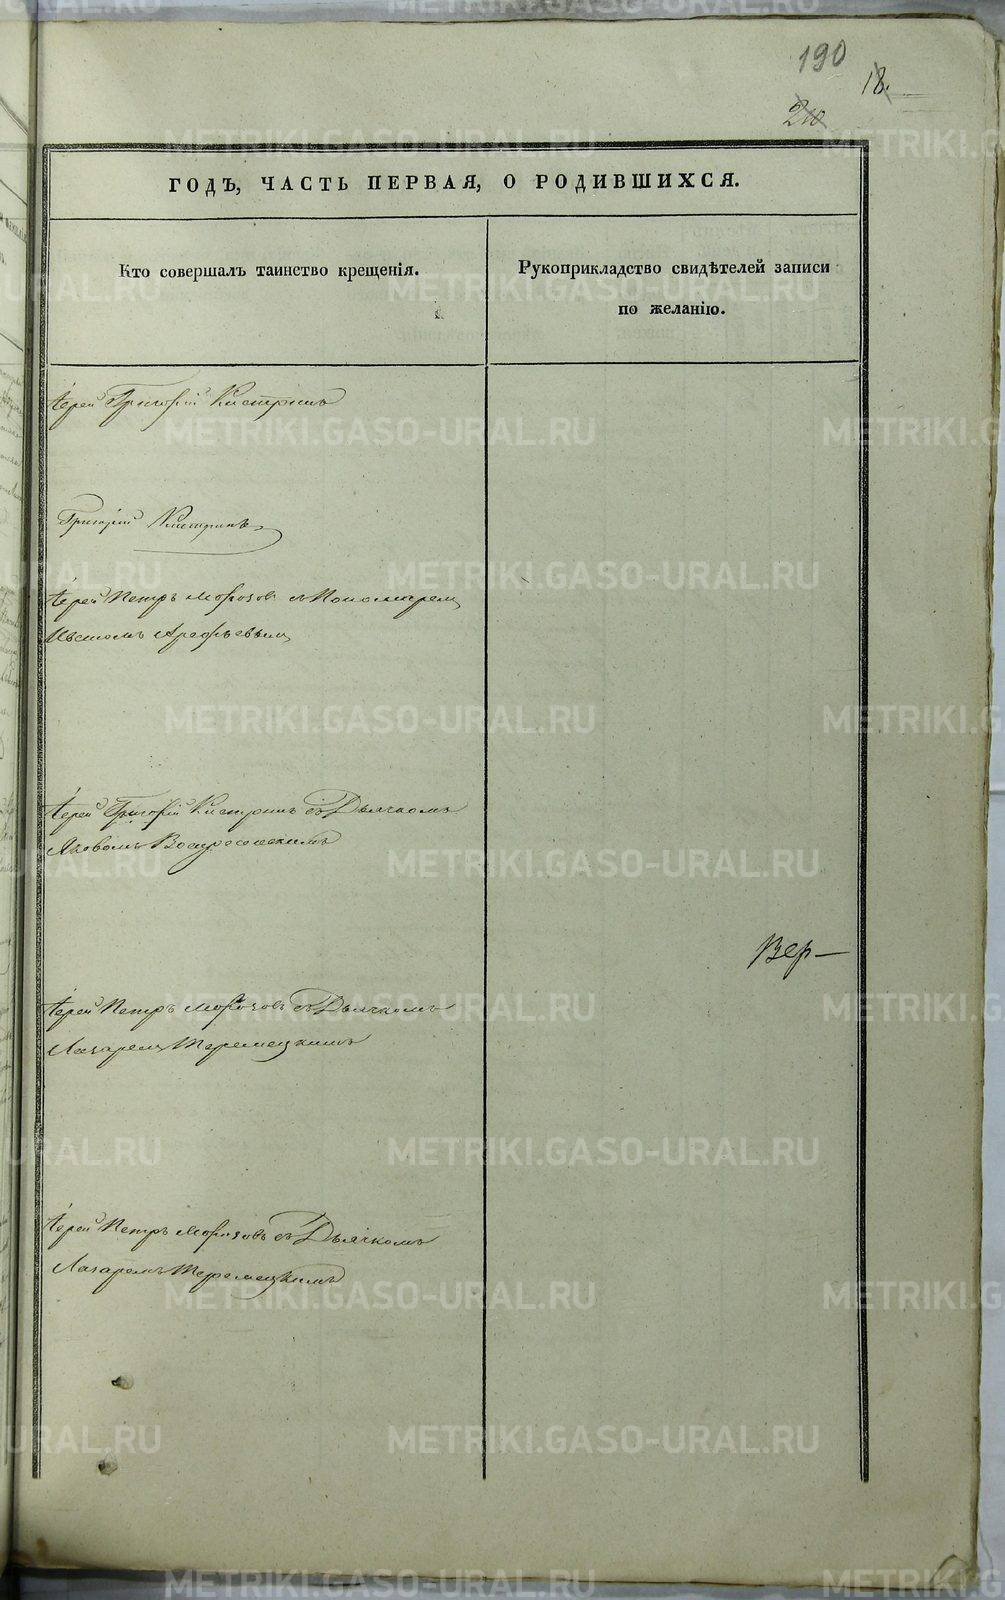 190
18.
210
ГОДЪ, ЧАСТЬ ПЕРВАЯ, О РОДИВШИХСЯ.
Кто совершалъ таинство крещенія.
Рукоприкладство свидѣтелей записи
по желанію.
Іерей Григорій Кистринъ
Григорій Кистринъ
Іерей Петръ Морозовъ съ Пономаремъ
Арефьевымъ
Іерей Григорій Кистринъ съ Дьячкомъ
Яковомъ Воскресенскимъ
Вер—
Іерей Петръ Морозовъ съ Дьячкомъ
Лазаремъ Теремецкимъ
Іерей Петръ Морозовъ съ Дьячкомъ
Лазаремъ Теремецкимъ
METRIKI.GASO-URAL.RU